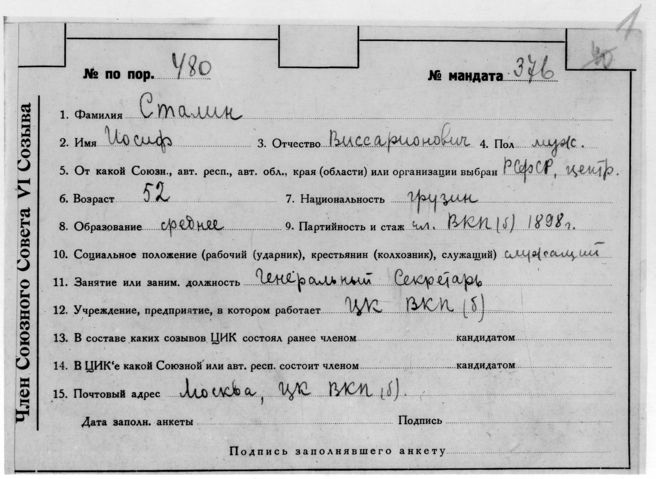 1
40
№ по пор. 480 № мандата 376
Член Союзного Совета VI Созыва
1. Фамилия Сталин
2. Имя Иосиф 3. Отчество Виссарионович 4. Пол муж.
5. От какой Союзн., авт. респ., авт. обл., края (области) или организации выбран РСФСР, центр.
6. Возраст 52 7. Национальность грузин
8. Образование среднее 9. Партийность и стаж чл. ВКП(б) 1898 г.
10. Социальное положение (рабочий (ударник), крестьянин (колхозник), служащий) служащий
11. Занятие или заним. должность Генеральный Секретарь
12. Учреждение, предприятие, в котором работает ЦК ВКП (б)
13. В составе каких созывов ЦИК состоял ранее членом кандидатом
14. В ЦИК'е какой Союзной или авт. респ. состоит членом кандидатом
15. Почтовый адрес Москва, ЦК ВКП (б).
Дата заполн. анкеты Подпись
Подпись заполнявшего анкету